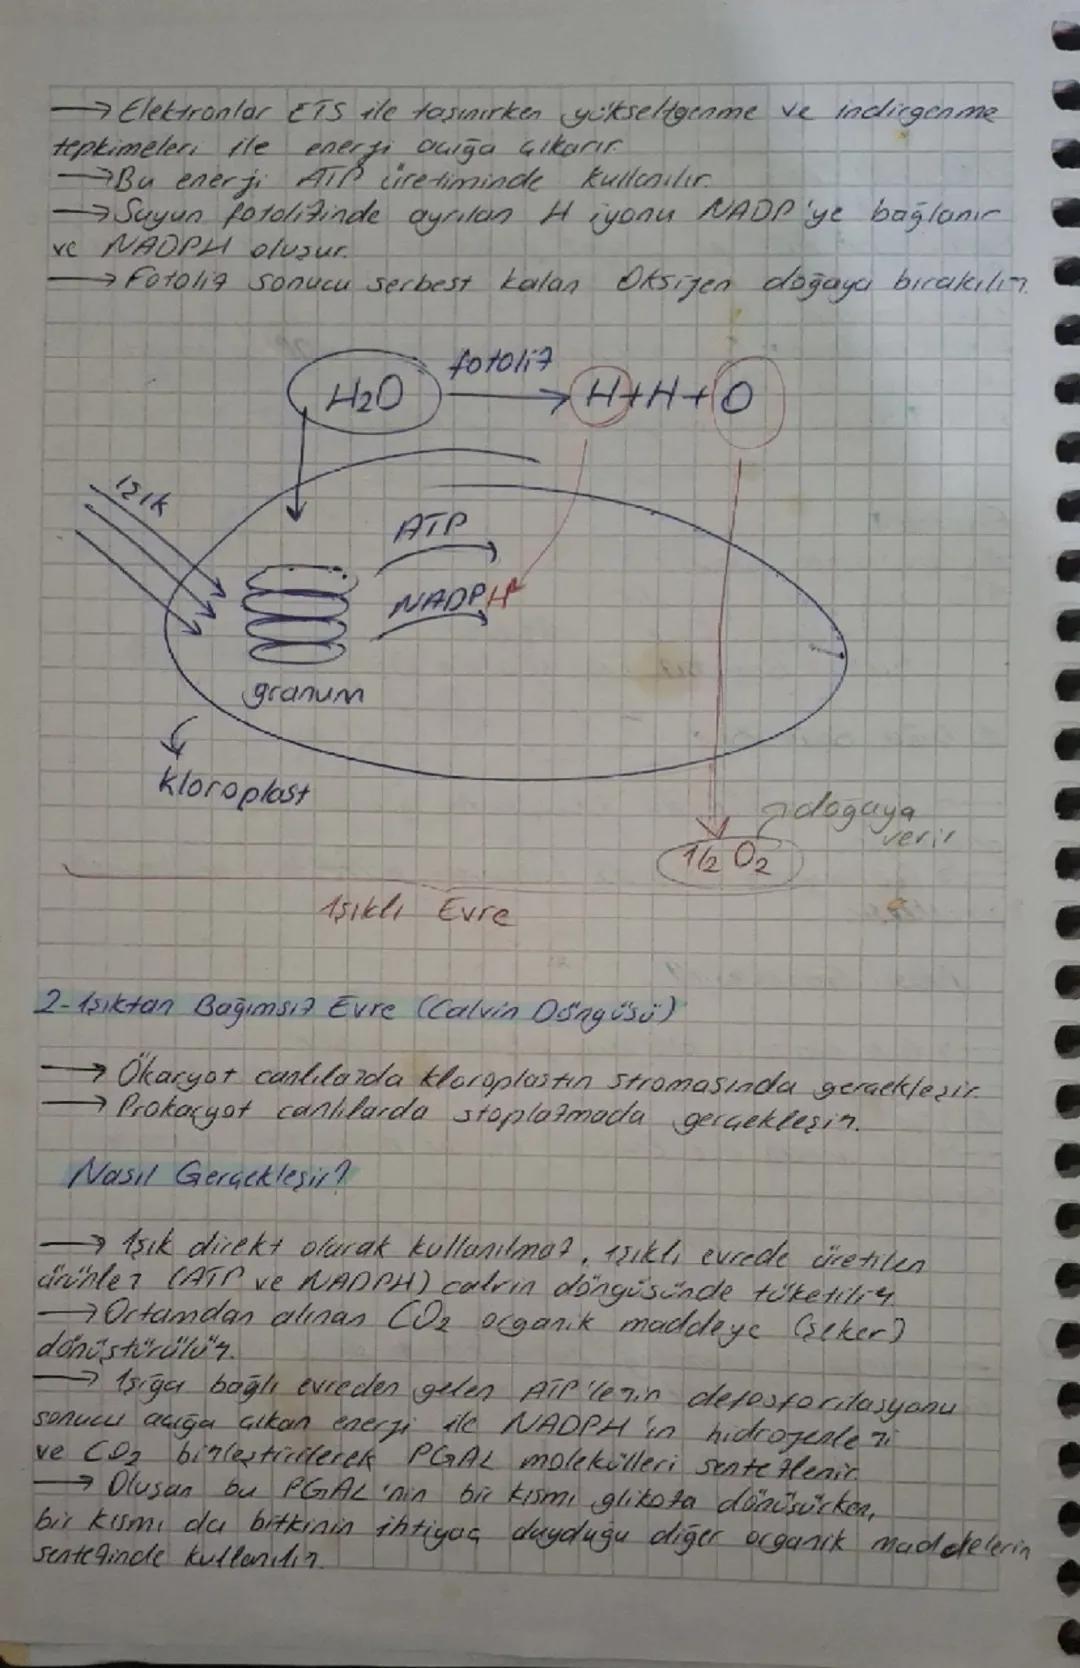 → Elektronlar ETS ile taşınırken yükseltgenme ve indirgenme
tepkimeleri ile enerji açığa çıkarır.
→ Bu enerji ATP üretiminde kullanılır.
→ Suyun fotolizinde ayrılan H iyonu NADP'ye bağlanır
ve NADPH oluşur.
→ Fotoliz sonucu serbest kalan Oksijen doğaya bırakılır.
H2O fotoliz → H+H+O
Işık
ATP
NADPH
granum
kloroplast
doğaya
verir
1/2 O2
Işıklı Evre
2- Işıktan Bağımsız Evre (Calvin Döngüsü)
→ Ökaryot canlılarda kloroplastın stromasında gerçekleşir.
→ Prokaryot canlılarda stoplazmada gerçekleşir.
Nasıl Gerçekleşir?
→ Işık direkt olarak kullanılmaz, ışıklı evrede üretilen
ürünler (ATP ve NADPH) calvin döngüsünde tüketilir.
→ Ortamdan alınan CO2 organik maddeye (şeker)
dönüştürülür.
→ Işığa bağlı evreden gelen ATP'lerin defosforilasyonu
sonucu açığa çıkan enerji ile NADPH'ın hidrojenleri
ve CO2 birleştirilerek PGAL molekülleri sentezlenir.
→ Oluşan bu PGAL'nin bir kısmı glikoza dönüşürken,
bir kısmı da bitkinin ihtiyaç duyduğu diğer organik maddelerin
sentezinde kullanılır.